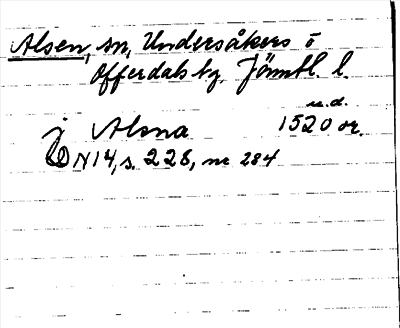 Alsen, sn, Undersåkers o
Offerdals tg. Jämtl. l.
u.d.
j Alsna 1520 or.
N14, s. 228, nr 284